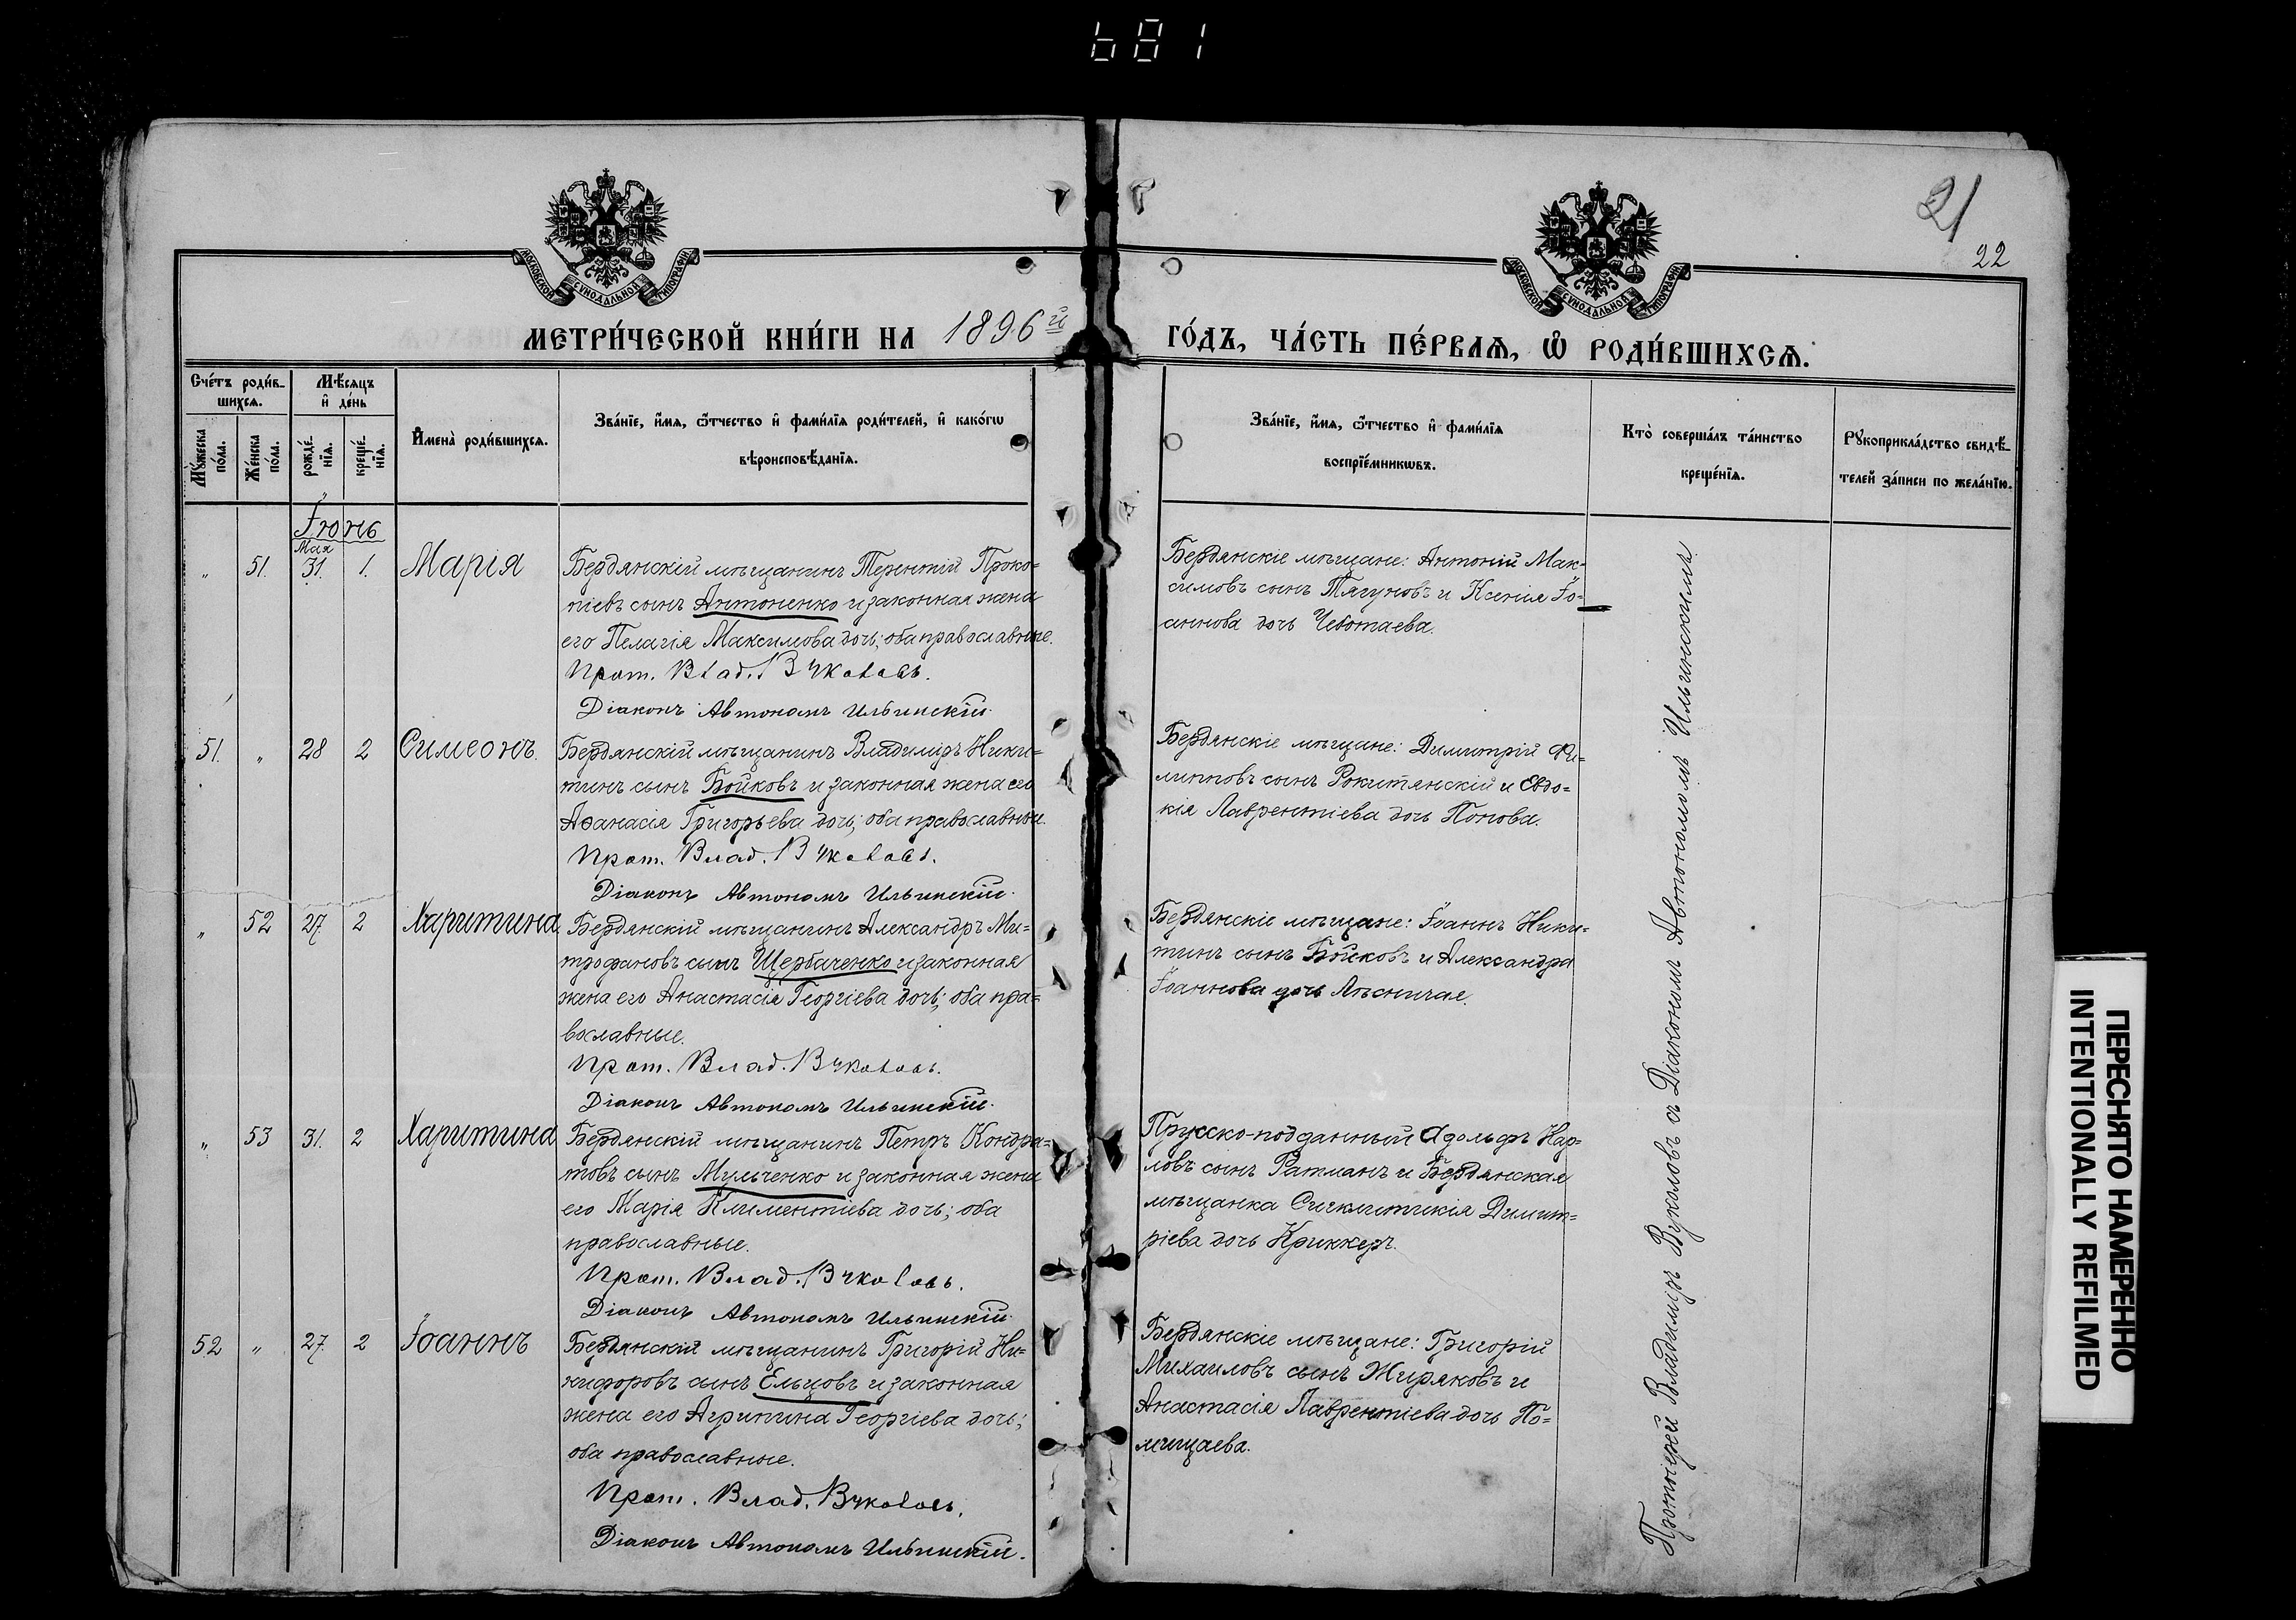 681
21
22
МОСКОВСКОЙ СѴНОДАЛЬНОЙ ТИПОГРАФІИ
МОСКОВСКОЙ СѴНОДАЛЬНОЙ ТИПОГРАФІИ
МЕТРИ́ЧЕСКОЙ КНИ́ГИ НА 1896й ГО́ДЪ, ЧА́СТЬ ПЕ́РВАѦ, Ѡ҆ РОДИ́ВШИХСѦ.
Сче́тъ роди́в-
шихсѧ.
Мѣ́сяцъ
и҆ де́нь
Мꙋ́жеска
по́ла.
Же́нска
по́ла.
рожде́-
нїѧ.
креще́-
нїѧ.
И҆мена̀ роди́вшихсѧ.
Зва́нїе, и҆́мѧ, ѻ҆́тчество и҆ фами́лїѧ роди́телей, и҆ како́гѡ
вѣроисповѣ́данїѧ.
Зва́нїе, и҆́мѧ, ѻ҆́тчество и҆ фами́лїѧ
воспрїе́мникѡвъ.
Кто̀ соверша́лъ та́инство
креще́нїѧ.
Рꙋкоприкла́дство свидѣ́-
телей за́писи по жела́нїю.
Іюнь
Мая
„ 51. 31. 1. Марія
Бердянскій мѣщанинъ Терентій Проко=
піевъ сынъ Антоненко и законная жена
его Пелагія Максимова дочь; оба православные.
Прот. Влад. Вуколовъ.
Діаконъ Автономъ Ильинскій.
Бердянскіе мѣщане: Антоній Мак-
симовъ сынъ Тягуновъ и Ксенія Іо-
аннова дочь Чеботаева.
51. „ 28 2 Симеонъ.
Бердянскій мѣщанинъ Владиміръ Ники=
тинъ сынъ Бойковъ и законная жена его
Аѳанасія Григорьева дочь; оба православные.
Прот. Влад. Вуколовъ.
Діаконъ Автономъ Ильинскій.
Бердянскіе мѣщане: Димитрій Фи=
липповъ сынъ Рокитянскій и Евдо=
кія Лаврентіева дочь Попова.
„ 52 27 2 Харитина
Бердянскій мѣщанинъ Александръ Ми=
трофановъ сынъ Щербаченко и законная
жена его Анастасія Георгіева дочь; оба пра=
вославные.
Прот. Влад. Вуколовъ.
Діаконъ Автономъ Ильинскій.
Бердянскіе мѣщане: Іоаннъ Ники=
тинъ сынъ Бойковъ и Александра
Іоаннова дочь Лѣсничая.
„ 53 31. 2 Харитина
Бердянскій мѣщанинъ Петръ Кондра=
товъ сынъ Мульченко и законная жена
его Марія Климентіева дочь; оба
православные.
Прот. Влад. Вуколовъ.
Діаконъ Автономъ Ильинскій.
Прусско-подданный Адольфъ Кар=
ловъ сынъ Ратманъ и Бердянская
мѣщанка Синклитикія Димит=
ріева дочь Криккеръ.
52 „ 27. 2 Іоаннъ
Бердянскій мѣщанинъ Григорій Ни=
кифоровъ сынъ Ельцовъ и законная
жена его Агрипина Георгіева дочь;
оба православные.
Прот. Влад. Вуколовъ.
Діаконъ Автономъ Ильинскій.
Бердянскіе мѣщане: Григорій
Михаиловъ сынъ Жиряковъ и
Анастасія Лаврентіева дочь
Протоіерей Владиміръ Вуколовъ съ Діакономъ Автономомъ Ильинскимъ.
ПЕРЕСНЯТО НАМЕРЕННО
INTENTIONALLY REFILMED